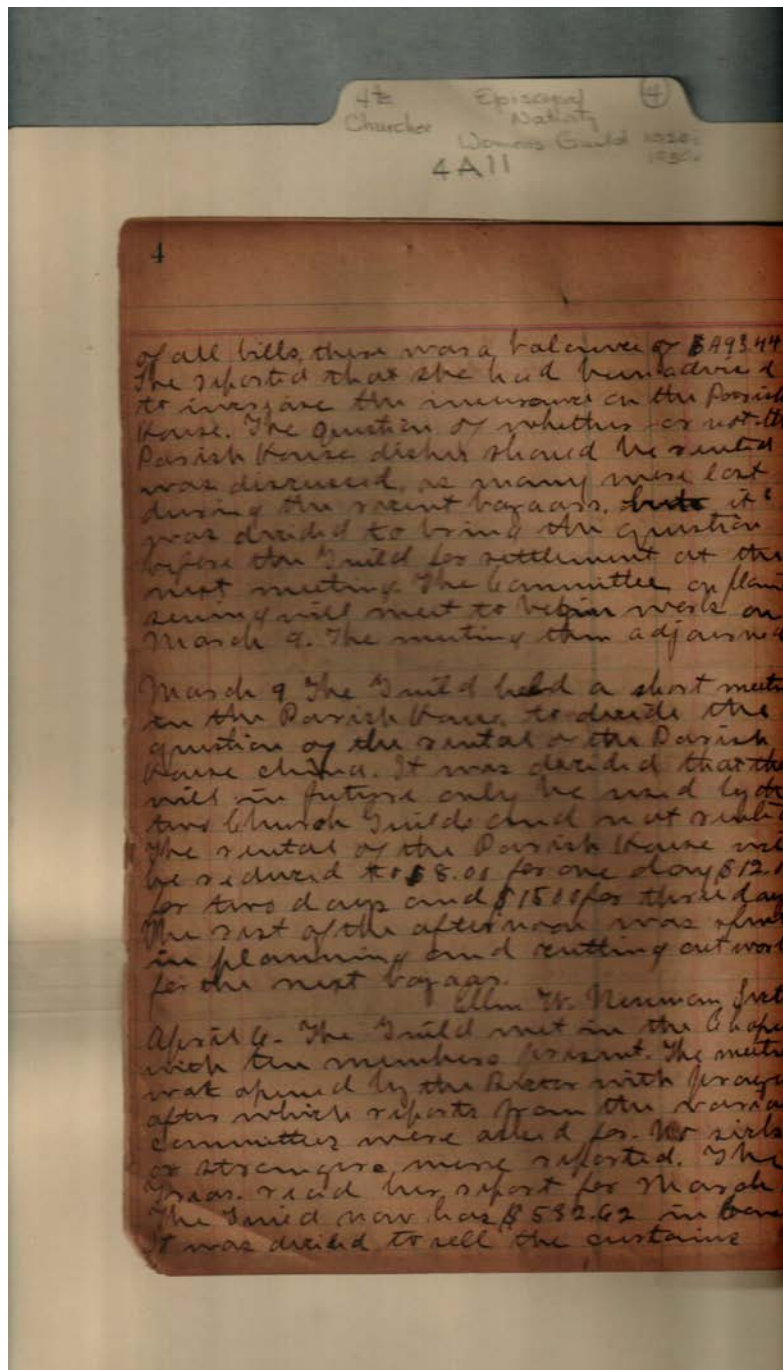 4
Episcopal
Churches
Nativity
Womens Guild 1920s
1930s
4A11
4
of all bills, there was a balance of $493.44
She reported that she had been advised
to increase the insurance on the Parish
House. The question of whether or not the
Parish House dishes should be rented
was discussed, as many were lost
during the recent bazaars, it
was decided to bring the question
before the Guild for settlement at the
next meeting. The Committee on plain
sewing will meet to begin work on
March 9. The meeting then adjourned
March 9 The Guild held a short meeti
in the Parish House, to decide the
question of the rental of the Parish
House china. It was decided that the
will in future only be used by the
two Church Guilds and not rented
The rental of the Parish House wil
be reduced to $8.00 for one day $12.0
for two days and $15.00 for three day
The rest of the afternoon was spent
in planning and cutting out work
for the next bazaar.
Ellen W. Newman
April 6 - The Guild met in the Chape
with ten members present. The meeti
was opened by the Rector with praye
after which reports from the vario
committees were asked for. No sick
or strangers were reported. The
Treas. read her report for March
The Guild now has $582.62 in
It was decided to sell the curtains